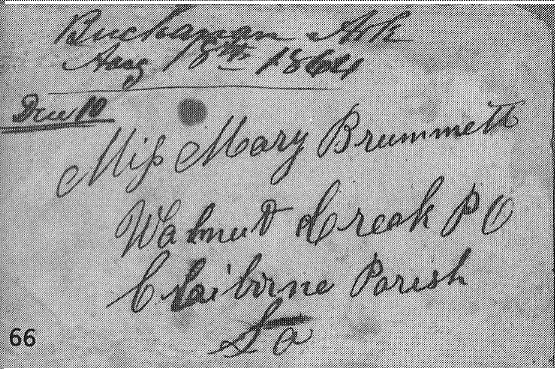 Buchanan Ark
Aug 18th 1864
Due 10
Miss Mary Brummett
Walnut Creek P O
Claiborne Parish
La
66